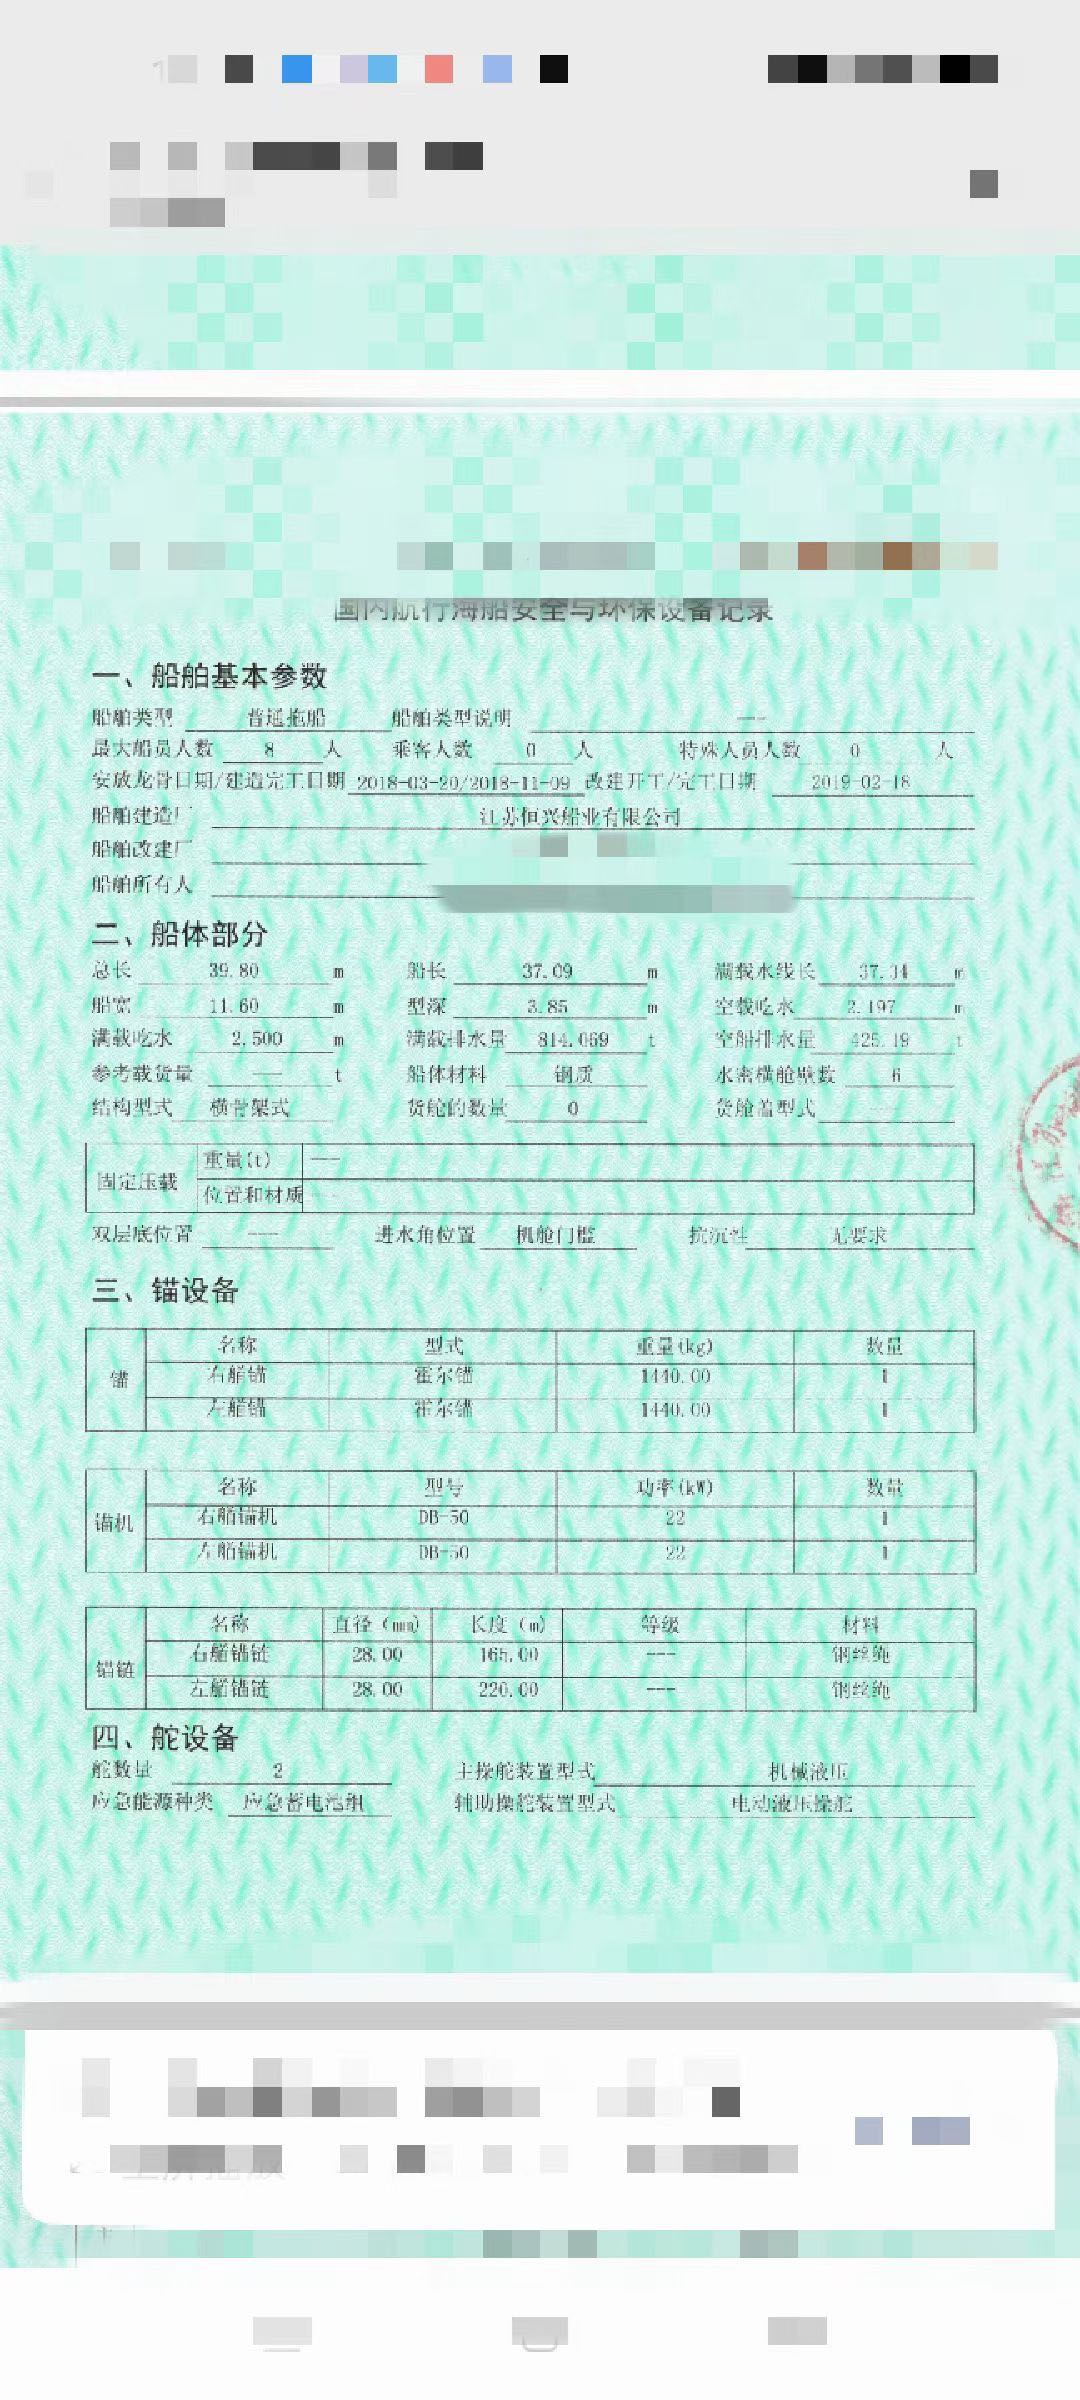 国内航行海船安全与环保设备记录
一、船舶基本参数
船舶类型 普通拖船 船舶类型说明 ---
最大船员人数 8 人 乘客人数 0 人 特殊人员人数 0 人
安放龙骨日期/建造完工日期 2018-03-20/2018-11-09 改建开工/完工日期 2019-02-18
船舶建造厂 江苏恒兴船业有限公司
船舶改建厂
船舶所有人
二、船体部分
总长 39.80 m 船长 37.09 m 满载水线长 37.34 m
船宽 11.60 m 型深 3.85 m 空载吃水 2.197 m
满载吃水 2.500 m 满载排水量 814.069 t 空船排水量 425.19 t
参考载货量 --- t 船体材料 钢质 水密横舱壁数 6
结构型式 横骨架式 货舱的数量 0 货舱盖型式
固定压载 重量(t) ---
位置和材质 ---
双层底位置 --- 进水角位置 机舱门槛 抗沉性 无要求
三、锚设备
锚 名称 型式 重量(kg) 数量
右艏锚 霍尔锚 1440.00 1
左艏锚 霍尔锚 1440.00 1
锚机 名称 型号 功率(kW) 数量
右艏锚机 DB-50 22 1
左艏锚机 DB-50 22 1
锚链 名称 直径(mm) 长度(m) 等级 材料
右艏锚链 28.00 165.00 --- 钢丝绳
左艏锚链 28.00 220.00 --- 钢丝绳
四、舵设备
舵数量 2 主操舵装置型式 机械液压
应急能源种类 应急蓄电池组 辅助操舵装置型式 电动液压操舵